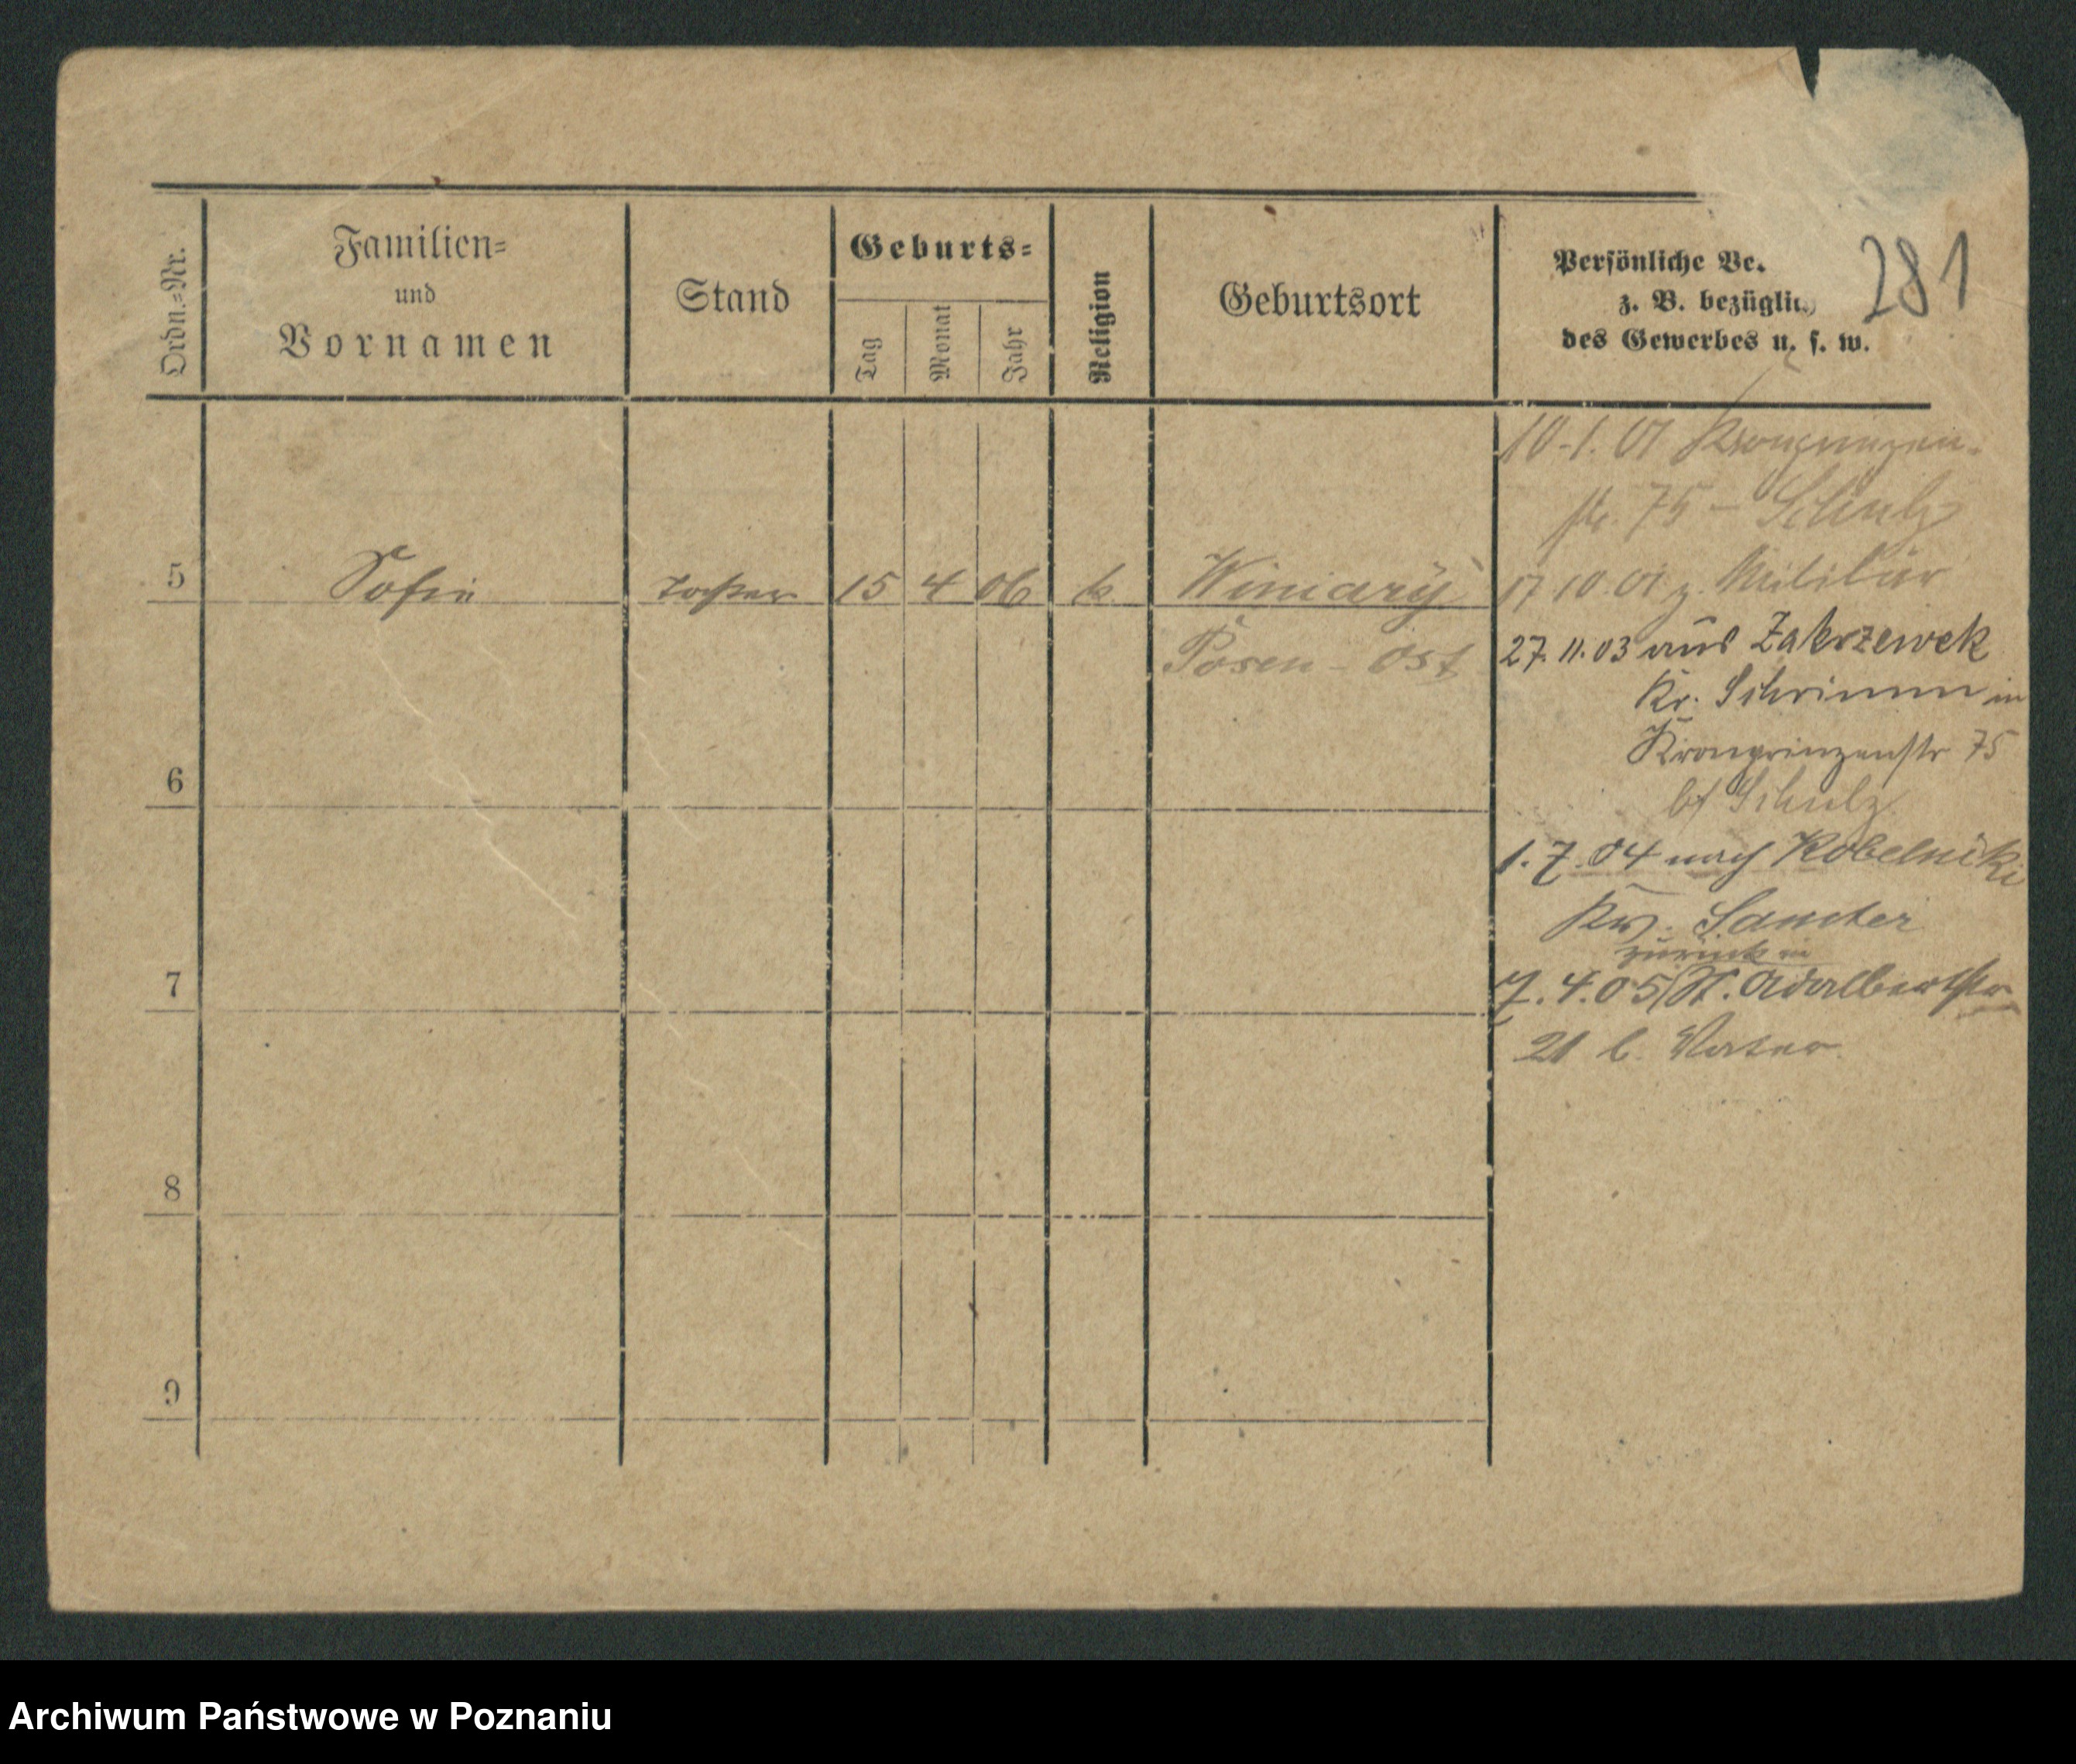 281
Ordn.=Nr.
Familien=
und
Vornamen
Stand
Geburts=
Tag
Monat
Jahr
Religion
Geburtsort
Persönliche Be.
z. B. bezüglich
des Gewerbes u. s. w.
5 Sofie Tochter 15 4 06 k Winiary
Posen - Ost
6
7
8
9
10-1. 01 Kronprinzen-
str. 75 - Schulz
17 10. 01 z. Militär
27. 11. 03 aus Zakrzewek
Kr. Schrimm in
Kronprinzenstr 75
b/ Schulz
1. 7. 04 nach Kobelniki
Kr. Samter
zurück in
7. 4. 05 St. Adalbertstr
21 b. Vater
Archiwum Państwowe w Poznaniu